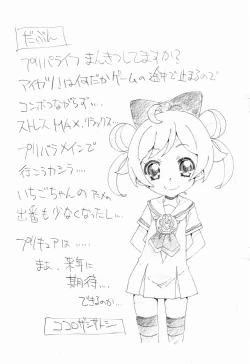 だぶん
プリパライフ まんきつしてますか?
アイカツ!は何だかゲームの途中で止まるので
コンボつながらず…
ストレスMAX、リラックス…
プリパラメインで
行こうカシラ…
いちごちゃんのアニメの
出番も少なくなったし…
プリキュアは……
まぁ、来年に
期待……
できるのか…
ココロザシサトシ